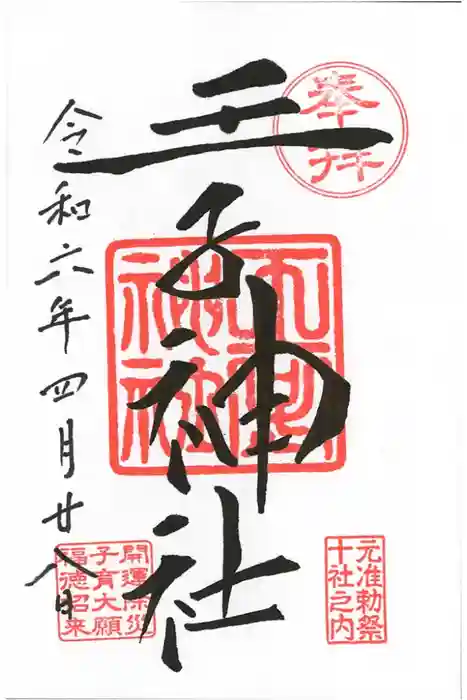 奉拝
王子神社
王子
神社
元准勅祭
十社之内
令和六年四月廿八日
開運除災
子育大願
福徳招来